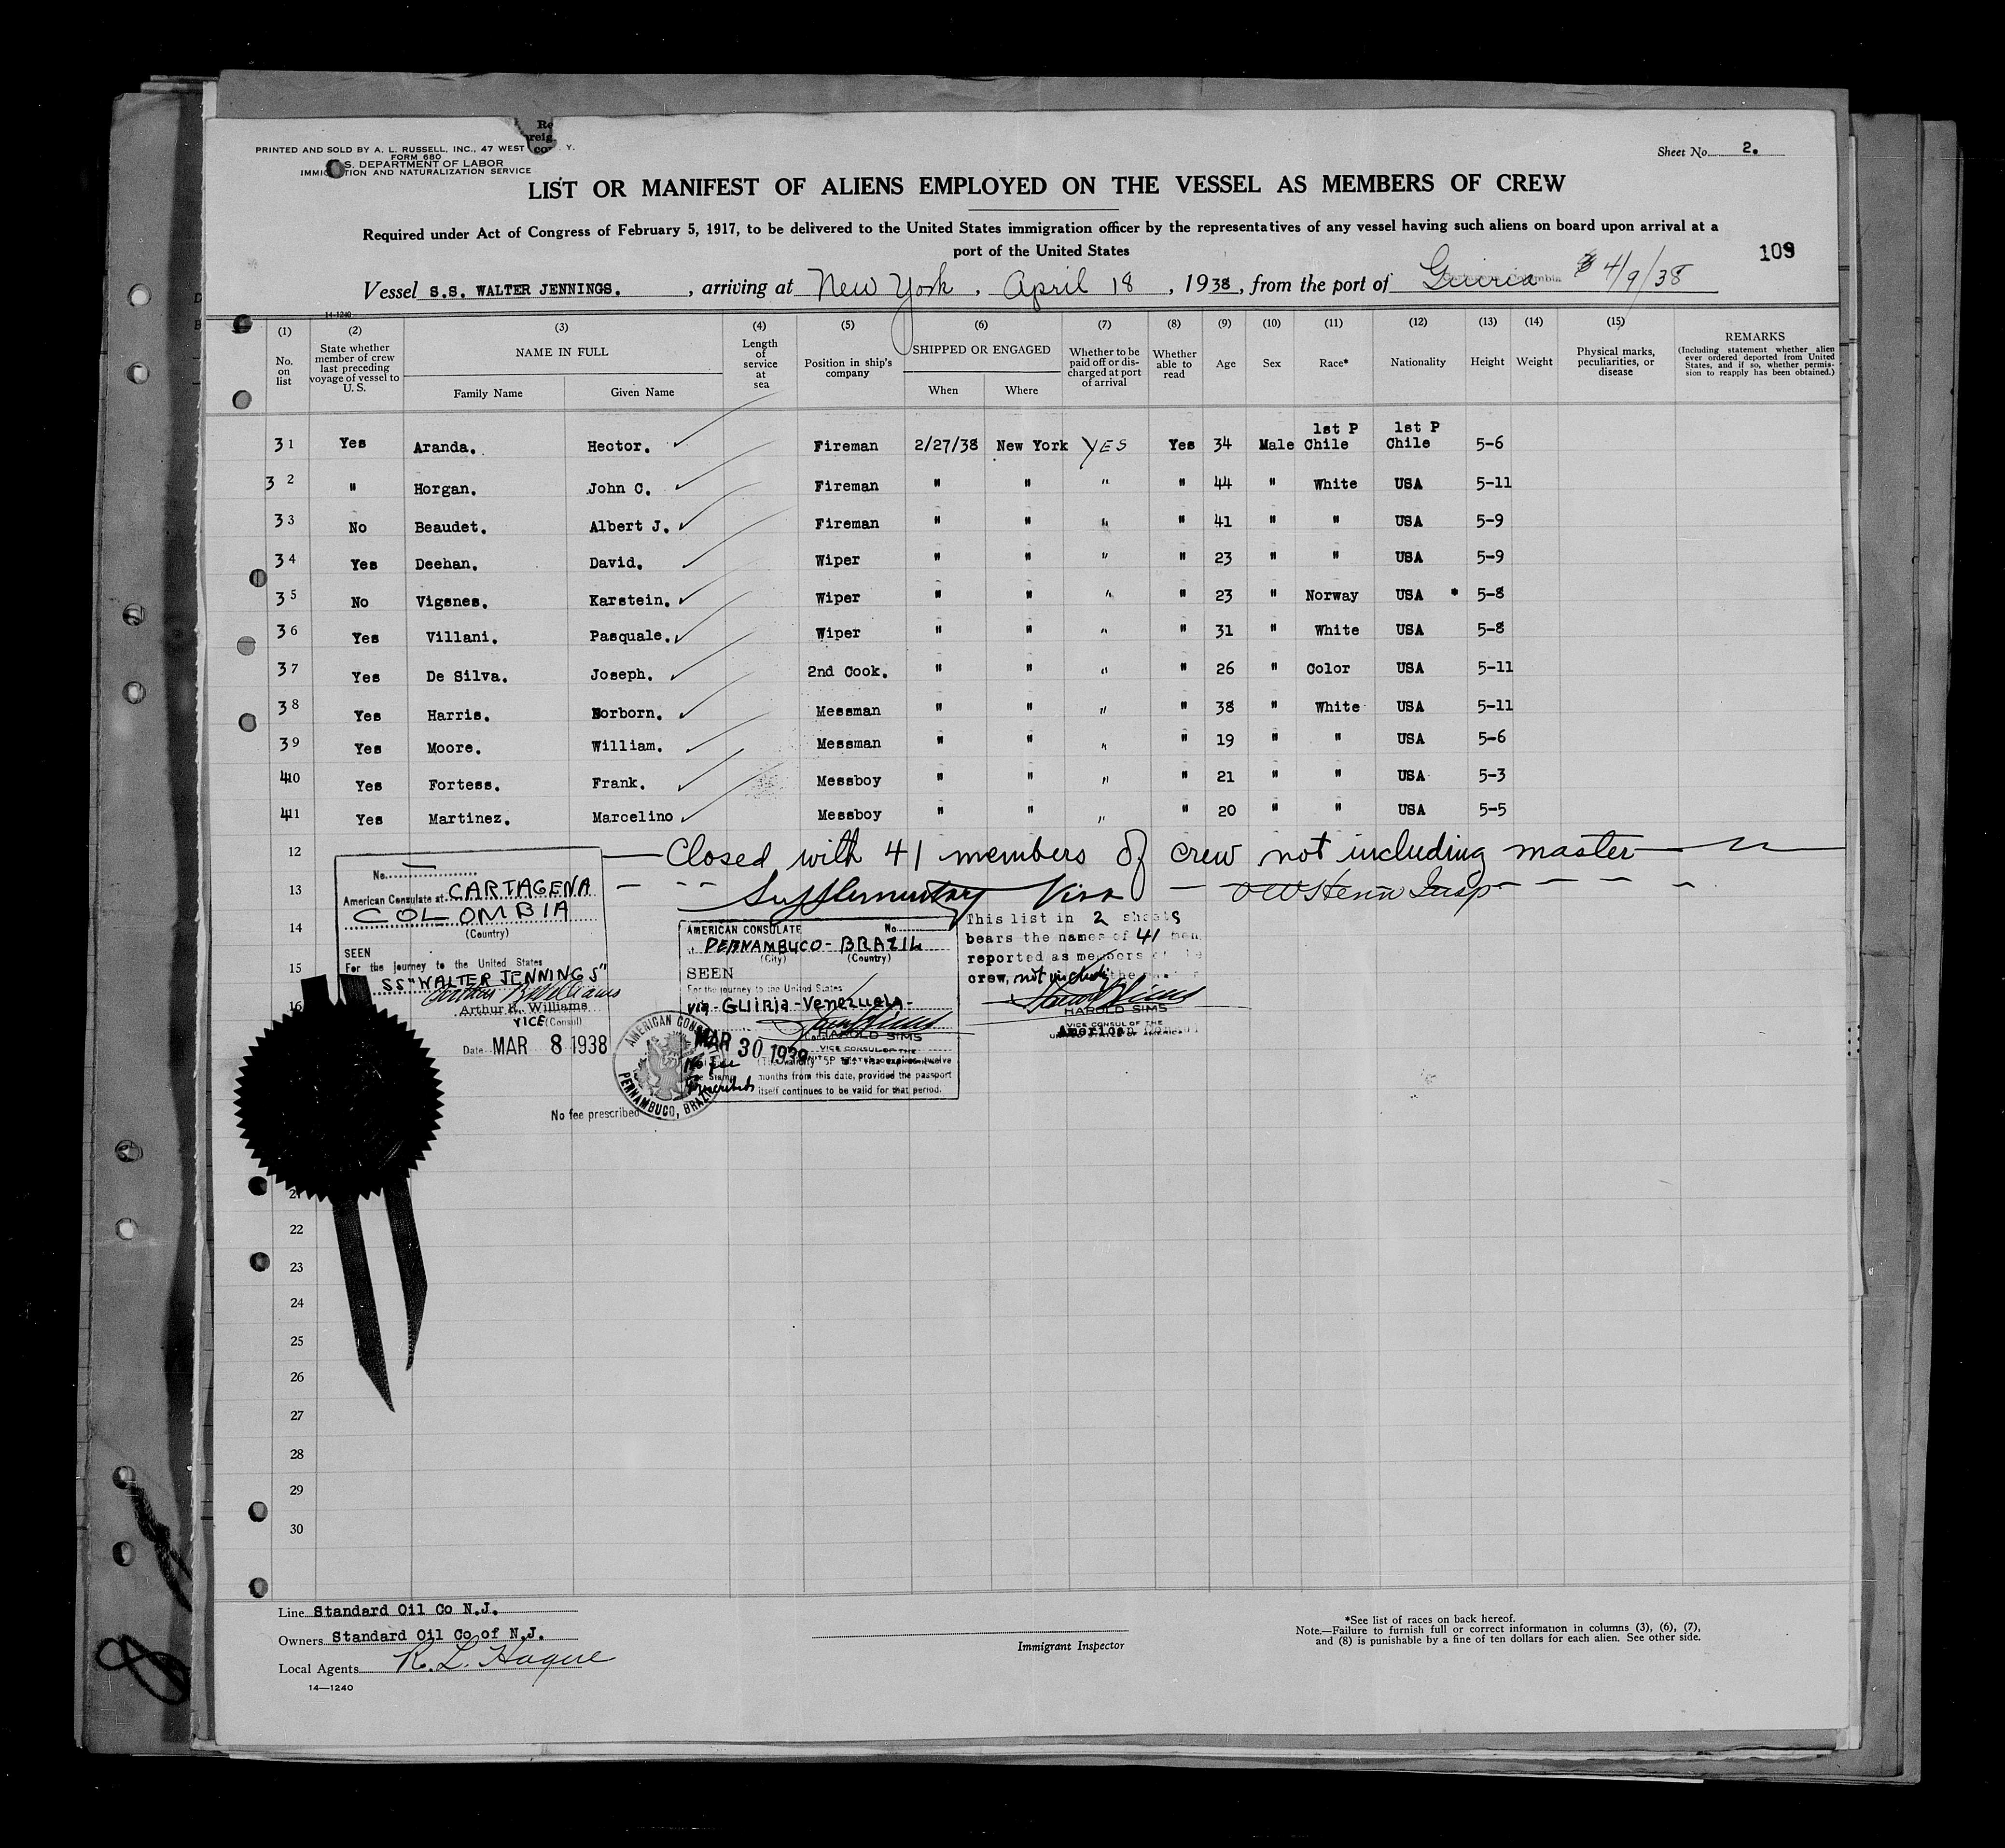 Re
reig
co
PRINTED AND SOLD BY A. L. RUSSELL, INC., 47 WEST Y.
FORM 680
S. DEPARTMENT OF LABOR
IMMIGRATION AND NATURALIZATION SERVICE
Sheet No. 2.
LIST OR MANIFEST OF ALIENS EMPLOYED ON THE VESSEL AS MEMBERS OF CREW
Required under Act of Congress of February 5, 1917, to be delivered to the United States immigration officer by the representatives of any vessel having such aliens on board upon arrival at a
port of the United States
109
Vessel S.S. WALTER JENNINGS. , arriving at New York , April 18 , 1938, from the port of Guiria 4/9/38
14-1240
(1) (2) (3) (4) (5) (6) (7) (8) (9) (10) (11) (12) (13) (14) (15)
No. on list State whether member of crew last preceding voyage of vessel to U. S. NAME IN FULL Family Name Given Name Length of service at sea Position in ship's company SHIPPED OR ENGAGED When Where Whether to be paid off or discharged at port of arrival Whether able to read Age Sex Race* Nationality Height Weight Physical marks, peculiarities, or disease REMARKS (Including statement whether alien ever ordered deported from United States, and if so, whether permission to reapply has been obtained.)
1st P 1st P
31 Yes Aranda. Hector. Fireman 2/27/38 New York YES Yes 34 Male Chile Chile 5-6
32 " Horgan. John C. Fireman " " " " 44 " White USA 5-11
33 No Beaudet. Albert J. Fireman " " " " 41 " " USA 5-9
34 Yes Deehan. David. Wiper " " " " 23 " " USA 5-9
35 No Vigsnes. Karstein. Wiper " " " " 23 " Norway USA * 5-8
36 Yes Villani. Pasquale. Wiper " " " " 31 " White USA 5-8
37 Yes De Silva. Joseph. 2nd Cook. " " " " 26 " Color USA 5-11
38 Yes Harris. Norborn. Messman " " " " 38 " White USA 5-11
39 Yes Moore. William. Messman " " " " 19 " " USA 5-6
410 Yes Fortess. Frank. Messboy " " " " 21 " " USA 5-3
411 Yes Martinez. Marcelino Messboy " " " " 20 " " USA 5-5
12 Closed with 41 members of crew not including master
13 Supplementary Visa
14
15
16
No.
American Consulate at CARTAGENA
COLOMBIA
(Country)
SEEN
For the journey to the United States
SS "WALTER JENNINGS"
Arthur R. Williams
Arthur R. Williams
VICE (Consul)
Date MAR 8 1938
No fee prescribed
AMERICAN CONSULATE No.
PERNAMBUCO - BRAZIL
(City) (Country)
SEEN
For the journey to the United States
via - Guiria - Venezuela -
HAROLD SIMS
VICE CONSUL OF THE
MAR 30 1938
No fee
prescribed
months from this date, provided the passport
itself continues to be valid for that period.
PERNAMBUCO, BRAZIL
This list in 2 sheets
bears the names of 41 men
reported as members of the
crew, not including the
HAROLD SIMS
VICE CONSUL OF THE
American
21
22
23
24
25
26
27
28
29
30
Line Standard Oil Co N.J.
Owners Standard Oil Co of N.J.
Local Agents R. L. Hague
14—1240
Immigrant Inspector
*See list of races on back hereof.
Note.—Failure to furnish full or correct information in columns (3), (6), (7),
and (8) is punishable by a fine of ten dollars for each alien. See other side.
8